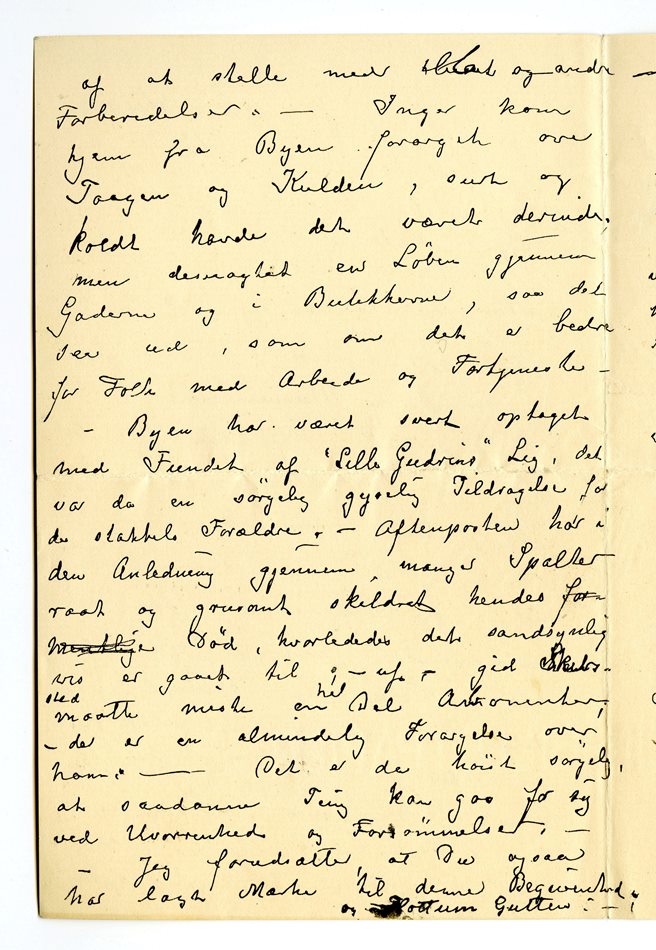 af at stelle med og andre
Forberedelser. —  Inger kom
hjem fra Byen forarget over
Taagen og Kulden, surt og
koldt havde det været derinde,
men desuagtet en Löben gjennem
Gaderne og i Butikkerne, saa det
ser ud, som om det er bedre
for Folk med Arbeide og Fortjeneste —
— Byen har været svert optaget
med Fundet af "Lille Gudruns" Lig, det
var da en sörgelig gyselig Tildragelse for
de stakkels Forældre. — Aftenposten har i
den Anledning gjennem mange Spalter
raat og grusomt skildret hendes for-
mentlige Död, hvorledes det sandsynlig
vis er gaaet til; — uf, — gid Skibs-
sted maatte miste en hel Del Abonenter,
— der er en almindelig Forargelse over
ham. — Det er da höist sörgelig,
at saadanne Ting kan gaa for sig
ved Uvorrenhed og Forsömmelser. —
— Jeg forudsætter, at Du ogsaa
har lagt Mærke til denne Begivenhed
og Gutten. —